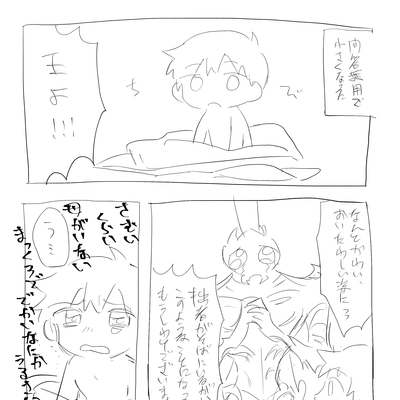 問答無用で
小さくなった
王よ!!!
ち
び
なんとかわいい、
おいたわしい姿に…
拙者がそばに居ながら
このようなことになって
もうしわけございませ
うう…
さむい
くらい
母がいない
まっくろででかいなにか
うるさい